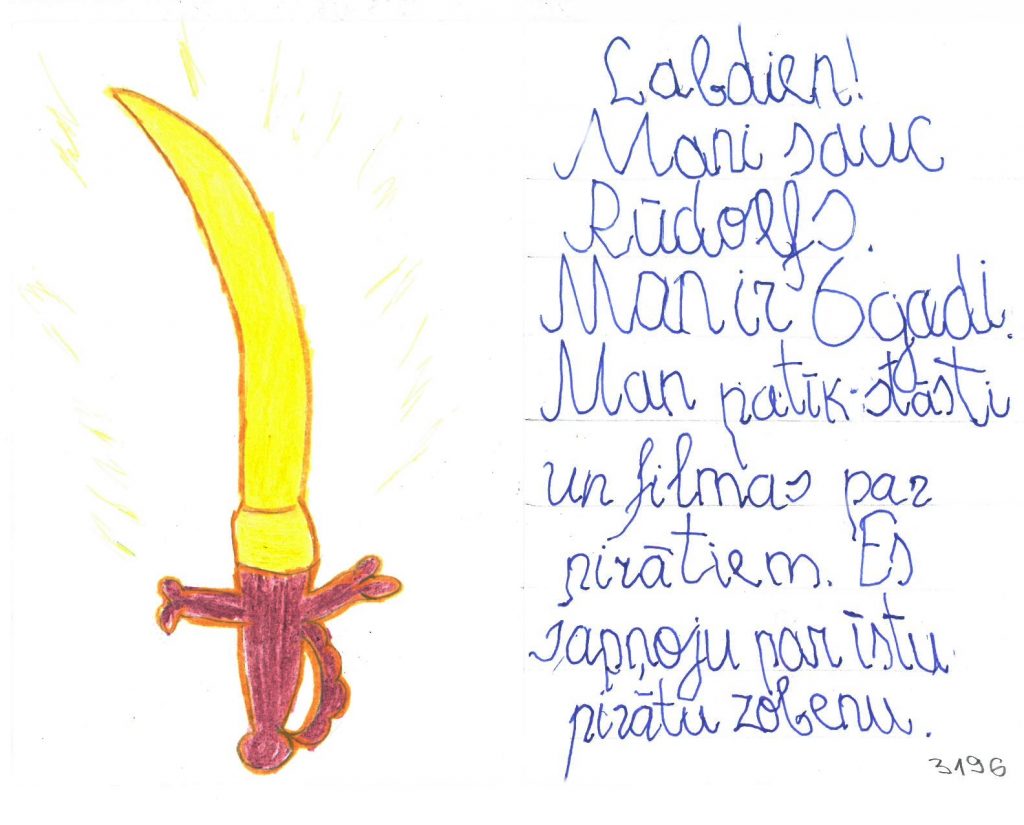 Labdien!
Mani sauc
Rūdolfs.
Man ir 6 gadi.
Man patīk stāsti
un filmas par
pirātiem. Es
sapņoju par īstu
pirātu zobenu.
3196